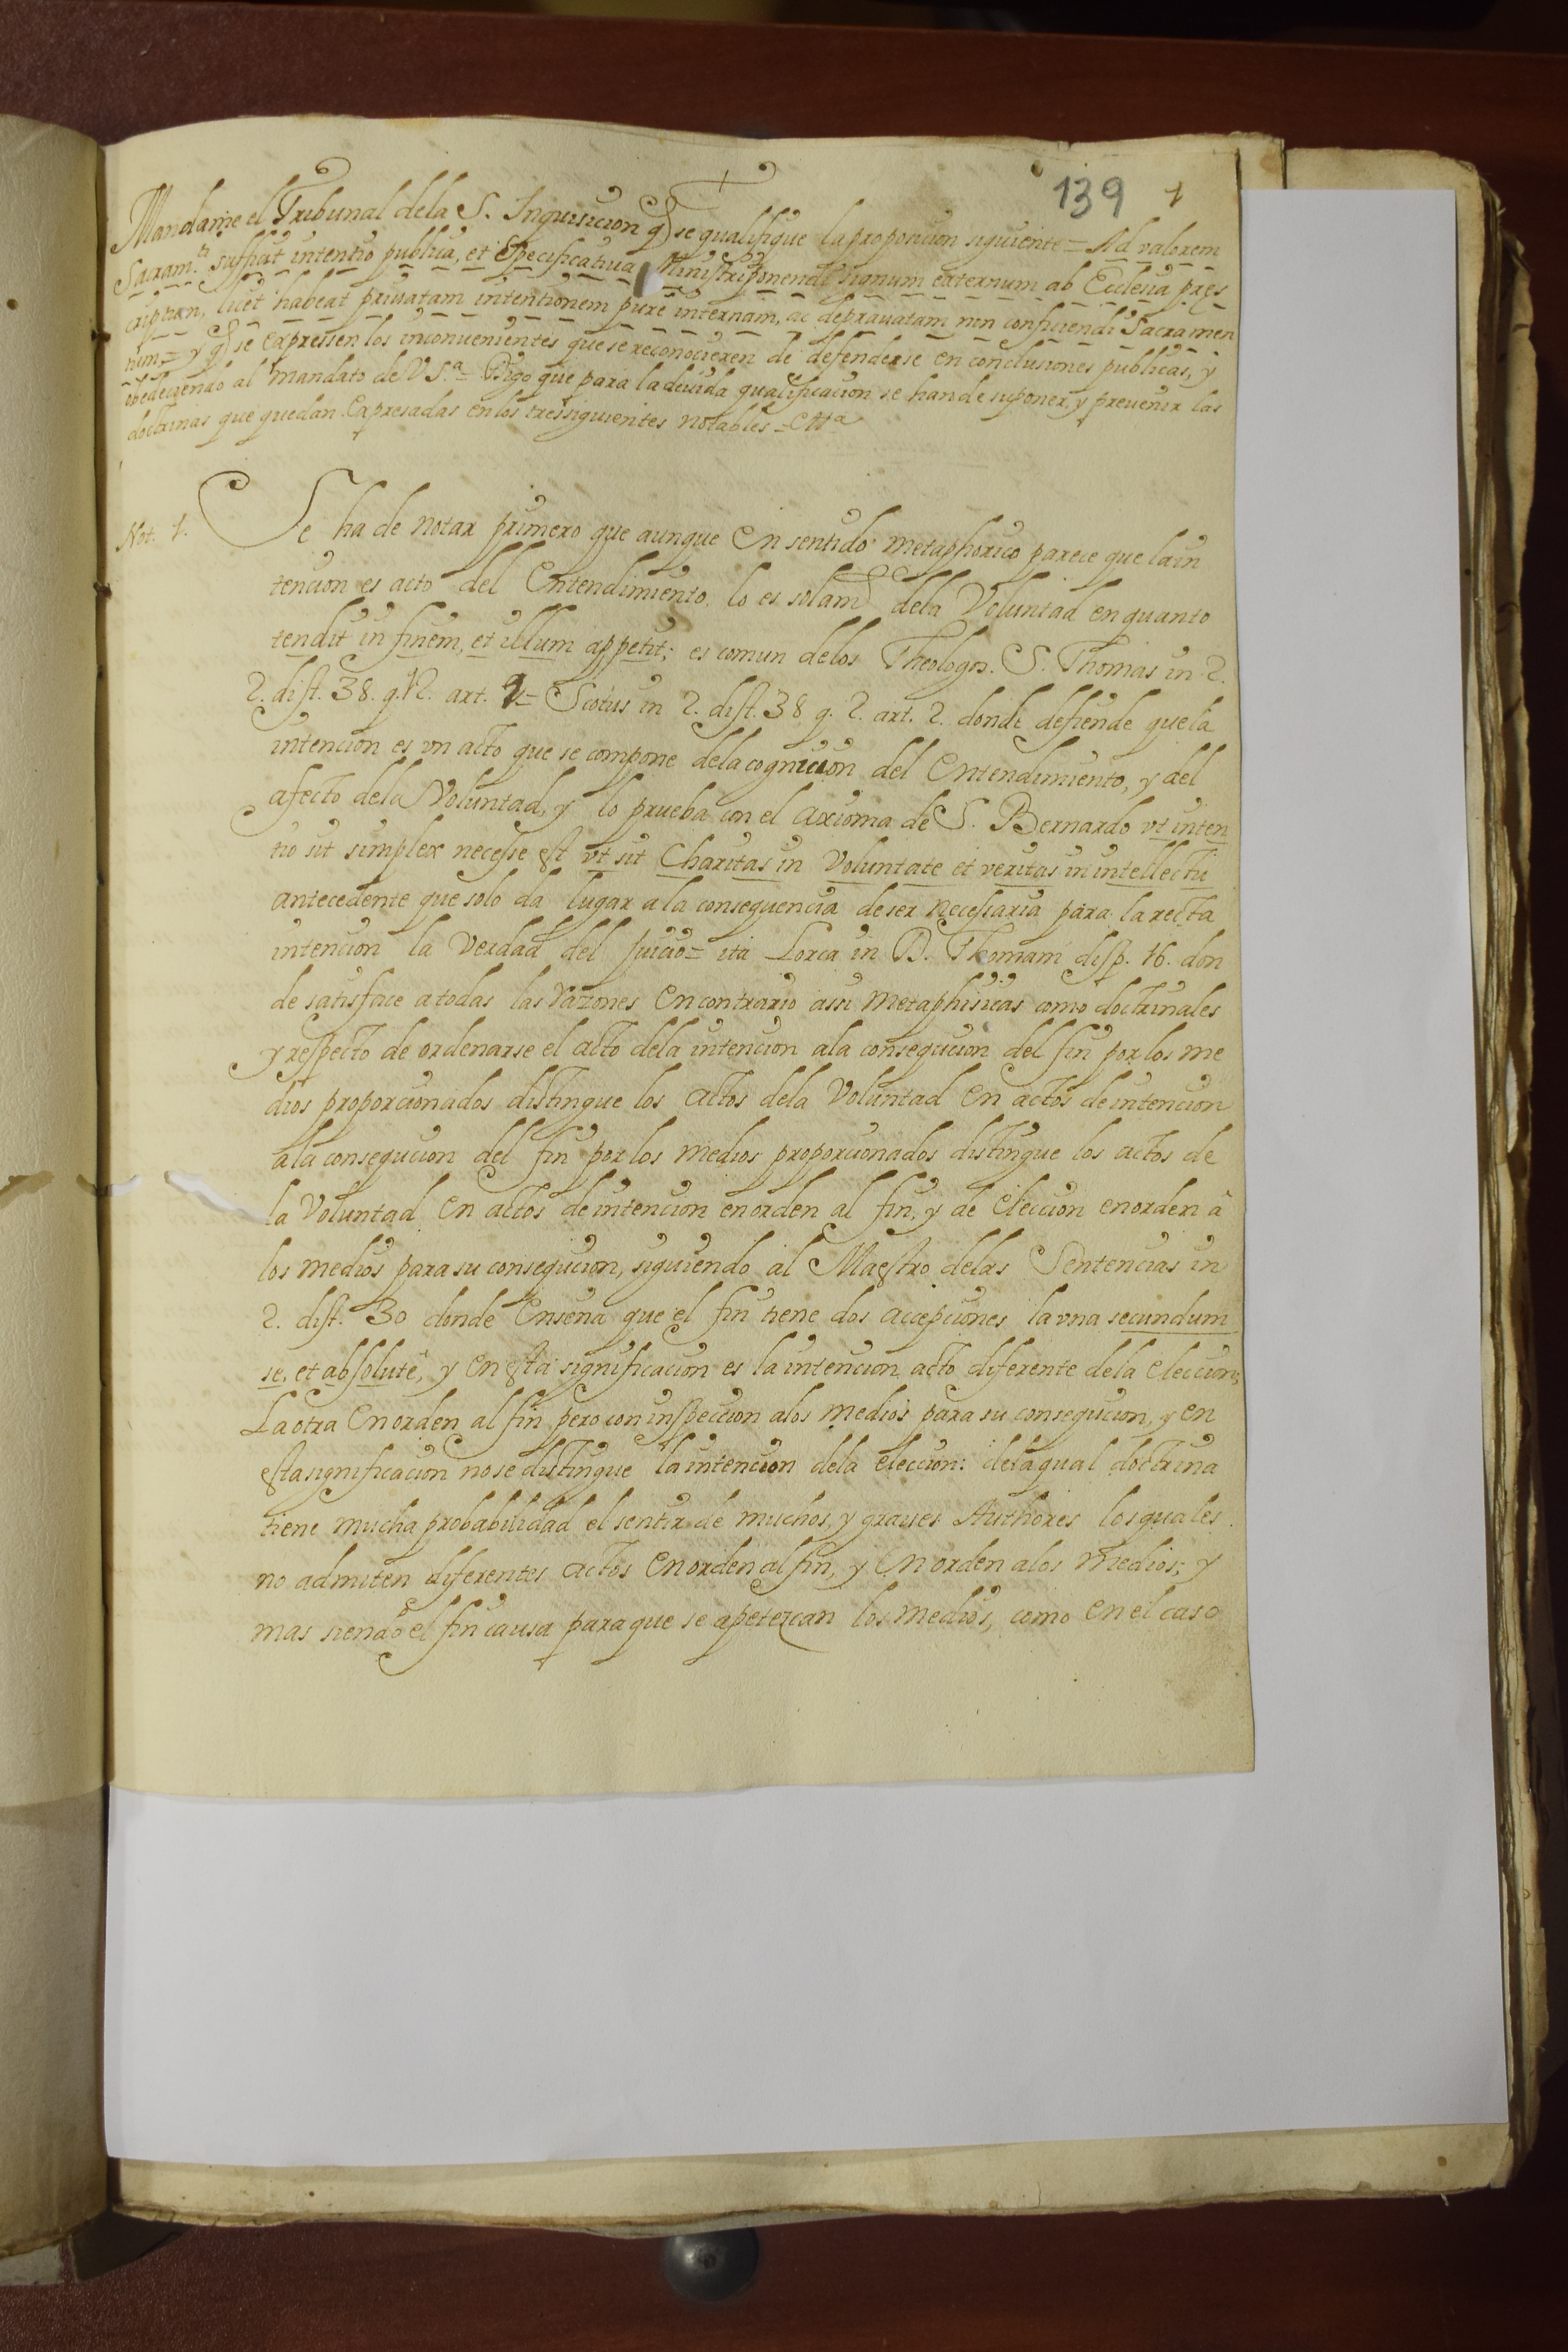 139 1
Mandame el Tribunal dela S. Inquisicion q̃ se qualifique la proposicion siguiente = Ad valorem
Sacram.ti sufficit intentio publica, et Specificatiua Ministri ponendi signum externum ab Ecclesia pres
criptum, licet habeat priuatam intentionem purè internam, ac deprauatam non conficiendi Sacramen
tum = y q̃ se expressen los inconvenientes que se reconocieren de defenderse en conclusiones publicas, y
obedeciendo al mandato de V S.ª = Digo que para la deuida qualificacion se han de suponer, y prevenir las
doctrinas que quedan expresadas en los tres siguientes notables = Ettª
Not. 1. Se ha de notar primero que aunque en sentido metaphorico parece que la in
tencion es acto del Entendimiento, lo es solam.te dela Voluntad en quanto
tendit in finem, et illum appetit; es comun delos Theologos. S. Thomas in 2.
2. dist. 38. q. 12. art. 1 = Scotus in 2. dist. 38 q. 2. art. 2. donde defiende que la
intencion es vn acto que se compone dela cognicion del Entendimiento, y del
afecto dela Voluntad, y lo prueba con el axioma de S. Bernardo vt inten
tio sit simplex necesse est vt sit Charitas in Voluntate et veritas in intellectu
antecedente que solo da lugar a la consequencia de ser necessaria para la recta
intencion la Verdad del Juicio = ita Lorca in D. Thomam disp. 16. don
de satisface a todas las razones en contrario assi metaphisicas como doctrinales
y respecto de ordenarse el acto dela intencion ala consegucion del fin por los me
dios proporcionados distingue los actos dela Voluntad en actos de intencion
ala consegucion del fin por los medios proporcionados distingue los actos de
la Voluntad en actos de intencion en orden al fin, y de eleccion en orden à
los medios para su consegucion, siguiendo al Maestro delas Sentencias in
2. dist. 30 donde ensena que el fin tiene dos accepciones la vna secundum
se, et absolutè, y en esta significacion es la intencion acto diferente dela eleccion;
La otra en orden al fin pero con inspeccion alos medios para su consegucion, y en
esta significacion no se distingue la intencion dela eleccion: dela qual doctrina
tiene mucha probabilidad el sentir de muchos, y graues Authores los quales
no admiten diferentes actos en orden al fin, y en orden a los medios; y
mas siendo el fin causa para que se apetezcan los medios, como en el caso